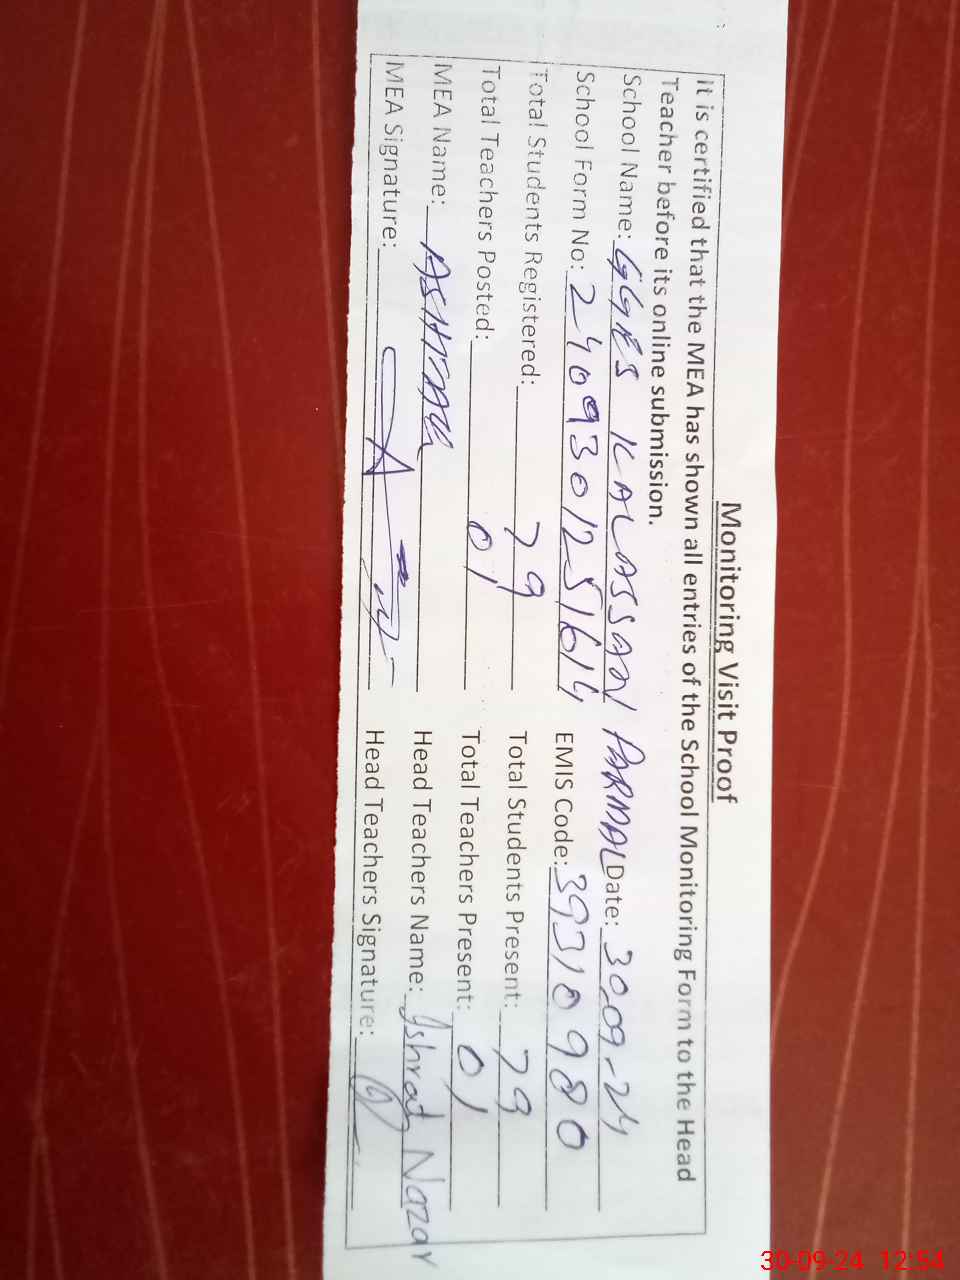 Monitoring Visit Proof
It is certified that the MEA has shown all entries of the School Monitoring Form to the Head
Teacher before its online submission.
School Name: GGES KALASSAN PARMAL Date: 30-09-24
School Form No: 2409301251614 EMIS Code: 39310980
Total Students Registered: 79 Total Students Present: 79
Total Teachers Posted: 01 Total Teachers Present: 01
MEA Name: ASHFAQ Head Teachers Name: Ishrat Nazar
MEA Signature: Head Teachers Signature:
30-09-24 12:54